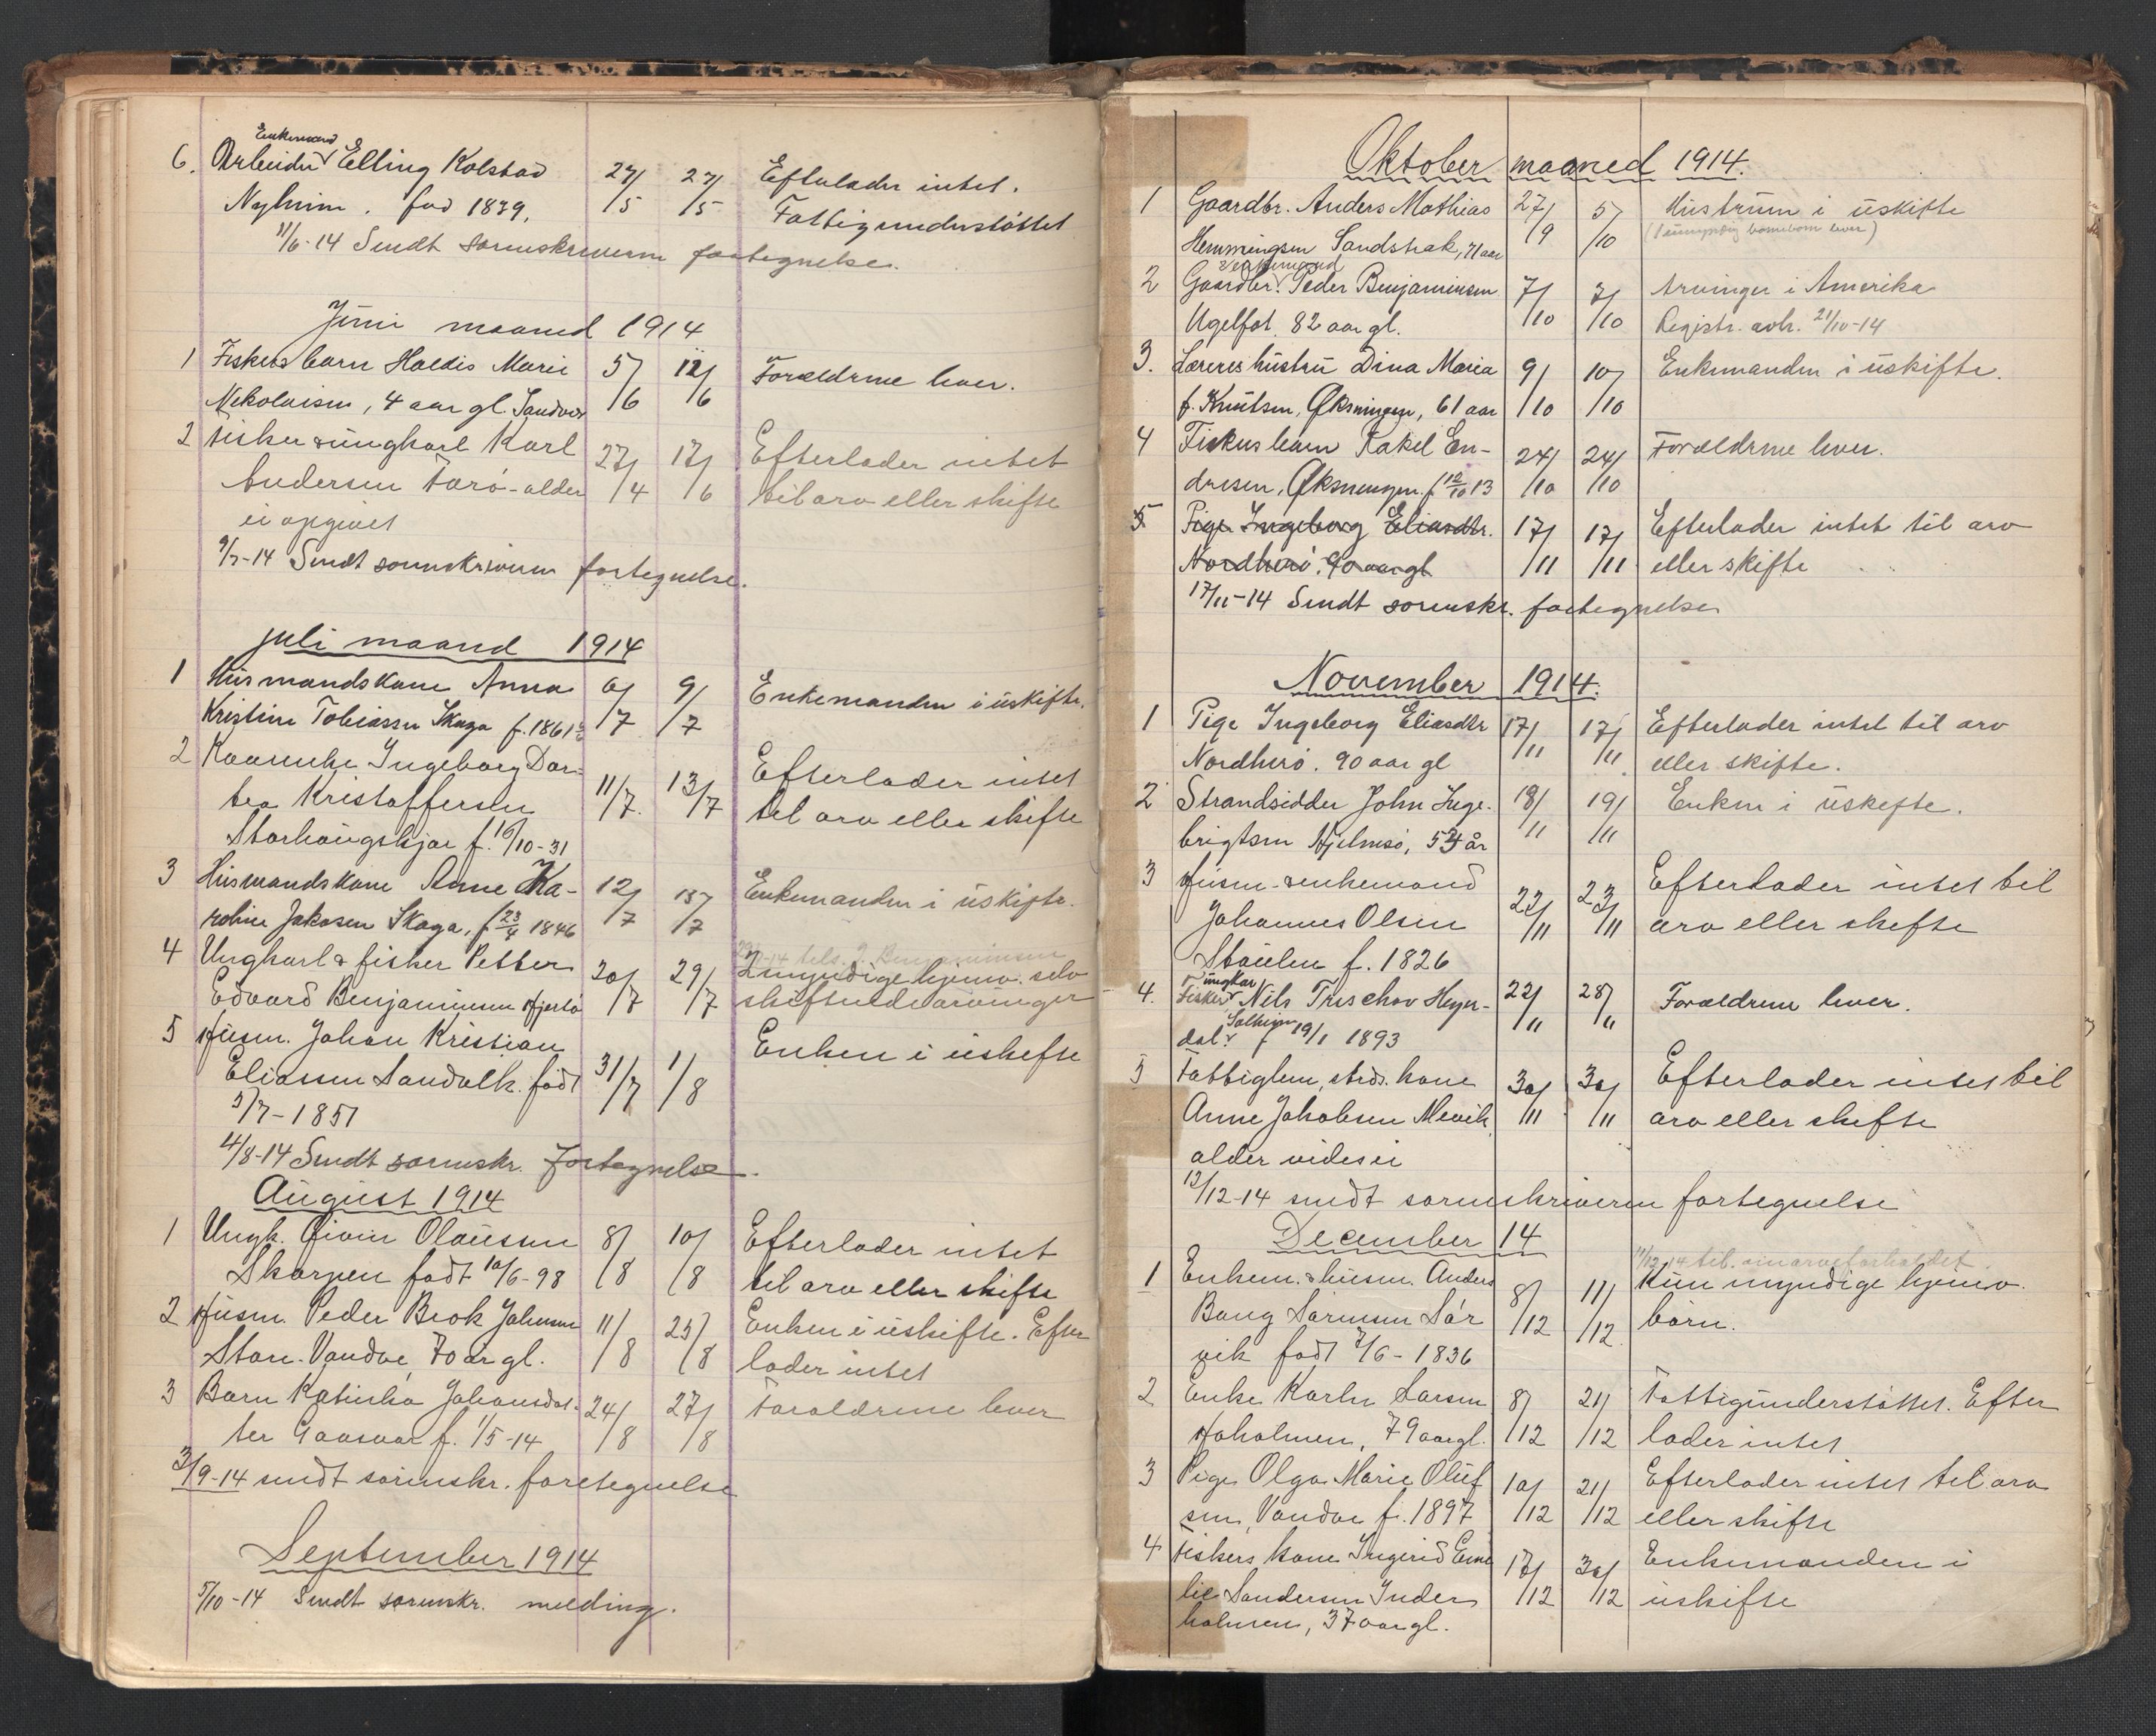 Enkemand
6. Arbeider Elling Kolstad 27/5 27/5 Efterlader intet.
Nyheim. fød 1839. Fattigunderstøttet
11/6-14 Sendt sorenskriveren fortegnelse.
Juni maaned 1914
1 Fiskers barn Haldis Marie 5/6 12/6 Forældrene lever.
Nikolaisen, 4 aar gl. Sandvær
2 Fisker & ungkarl Karl 27/4 17/6 Efterlader intet
Andersen Farø - alder til arv eller skifte
ei opgivet
9/7-14 Sendt sorenskriveren fortegnelse.
Juli maaned 1914
1 Husmandskone Anna 6/7 9/7 Enkemanden i uskifte.
Kristine Tobiassen Skaga f. 1861
2 Kaarenke Ingeborg Dor- 11/7 13/7 Efterlader intet
tea Kristoffersen til arv eller skifte
Storhaugskjær f. 16/10-31
3 Husmandskone Anne Ka- 12/7 13/7 Enkemanden i uskifte.
roline Jakosen Skaga, f 23/4 1846
4 Ungkarl & fisker Petter 20/7 29/7 2 myndige hjemv. selv
Edvard Benjaminsen Hjartø skiftende arvinger
5 Husm. Johan Kristian 31/7 1/8 Enken i uskifte
Eliassen Sandvlk. født
5/7-1851
4/8-14 Sendt sorenskr. fortegnelse.
August 1914
1 Ungk. Eivin Olausen 8/8 10/8 Efterlader intet
Skarpen født 10/6-98 til arv eller skifte
2 Husm. Peder Brok Johnsen 11/8 25/8 Enken i uskifte. Efter
Store-Vandve, 70 år gl. lader intet
3 Barn Katinka Johansdat- 24/8 27/8 Forældrene lever
ter Gaasvær f. 1/5-14
3/9-14 sendt sorenskr. foretegnelse
September 1914
5/10-14 Sendt sorenskr. melding.
Oktober maaned 1914.
1 Gaardbr. Anders Mathias 27/9 5/10 Hustruen i uskifte
Hemmingsen Sandstrak, 71 aar (1 umyndig barnebarn lever)
Enkemand
2 Gaardbr. Peder Benjaminsen 7/10 7/10 Arvinger i Amerika
Ugelfot 82 aar gl. Registr. avh. 21/10-14
3. Læreres hustru Dina Maria 9/10 10/10 Enkemanden i uskifte.
f. Knutsen, Øksningen, 61 aar
4 Fiskers barn Rakel En- 24/10 24/10 Forældrene lever.
dresen, Øksningen. f 12/10 13
5 Pige Ingeborg Eliasdtr. 17/11 17/11 Efterlader intet til arv
Nordherø. 90 aar gl eller skifte
17/11-14 Sendt sorenskr. fortegnelse
November 1914.
1 Pige Ingeborg Eliasdtr 17/11 17/11 Efterlader intet til arv
Nordherø. 90 aar gl eller skifte.
2 Strandsidder John Inge- 18/11 19/11 Enken i uskifte.
brigtsen Hjelmsø, 54 år
3 Husm. & enkemand 22/11 23/11 Efterlader intet til
Johannes Olsen arv eller skifte
Staulen f. 1826
ungkar
4. Fisker Nils Treschov Heger- 22/11 28/11 Forældrene lever.
dal. Solheim f 19/1 1893
5 Fattiglem, strds. kone 30/11 30/11 Efterlader intet til
Anne Jakobsen Mevik, arv eller skifte
alder vides ei
12/12-14 sendt sorenskriveren fortegnelse
December 14
11/12-14 tel. om arveforholdet.
1 Enkem. & husm. Anders 8/12 11/12 Kun myndige hjemv.
Bang Sørensen Sør børn.
vik født 7/6-1836
2 Enke Karen Larsen 8/12 21/12 Fattigunderstøttet. Efter
Haholmen, 79 aar gl. lader intet
3 Pige Olga Marie Oluf 10/12 21/12 Efterlader intet til arv
sen, Vandve f. 1897 eller skifte
4 Fiskers kone Ingerid Emi 17/12 30/12 Enkemanden i
lie Sandersen Inder uskifte
holmen, 37 aar gl.